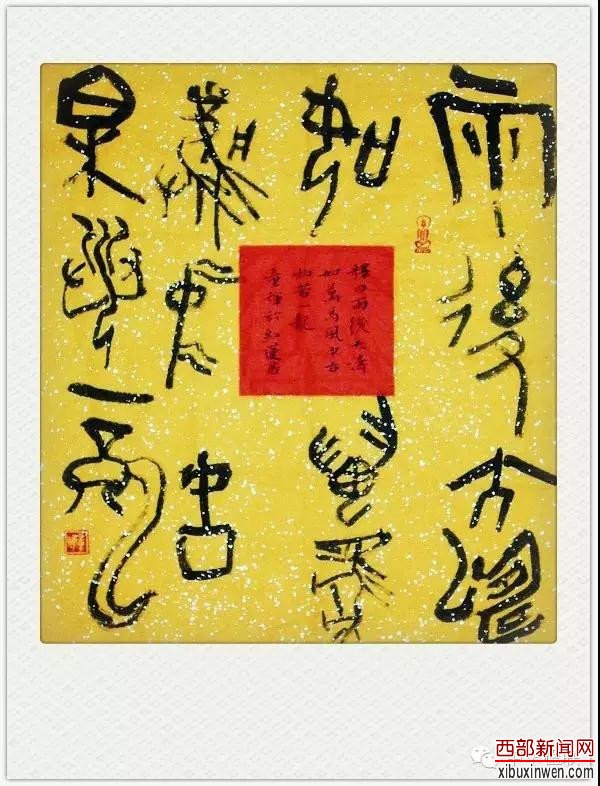 雨後大濤
如萬馬
風中古
松若一龍
釋曰雨後大濤
如萬馬風中古
松若一龍
於紅蓮居
西部新闻网
xibuxinwen.com